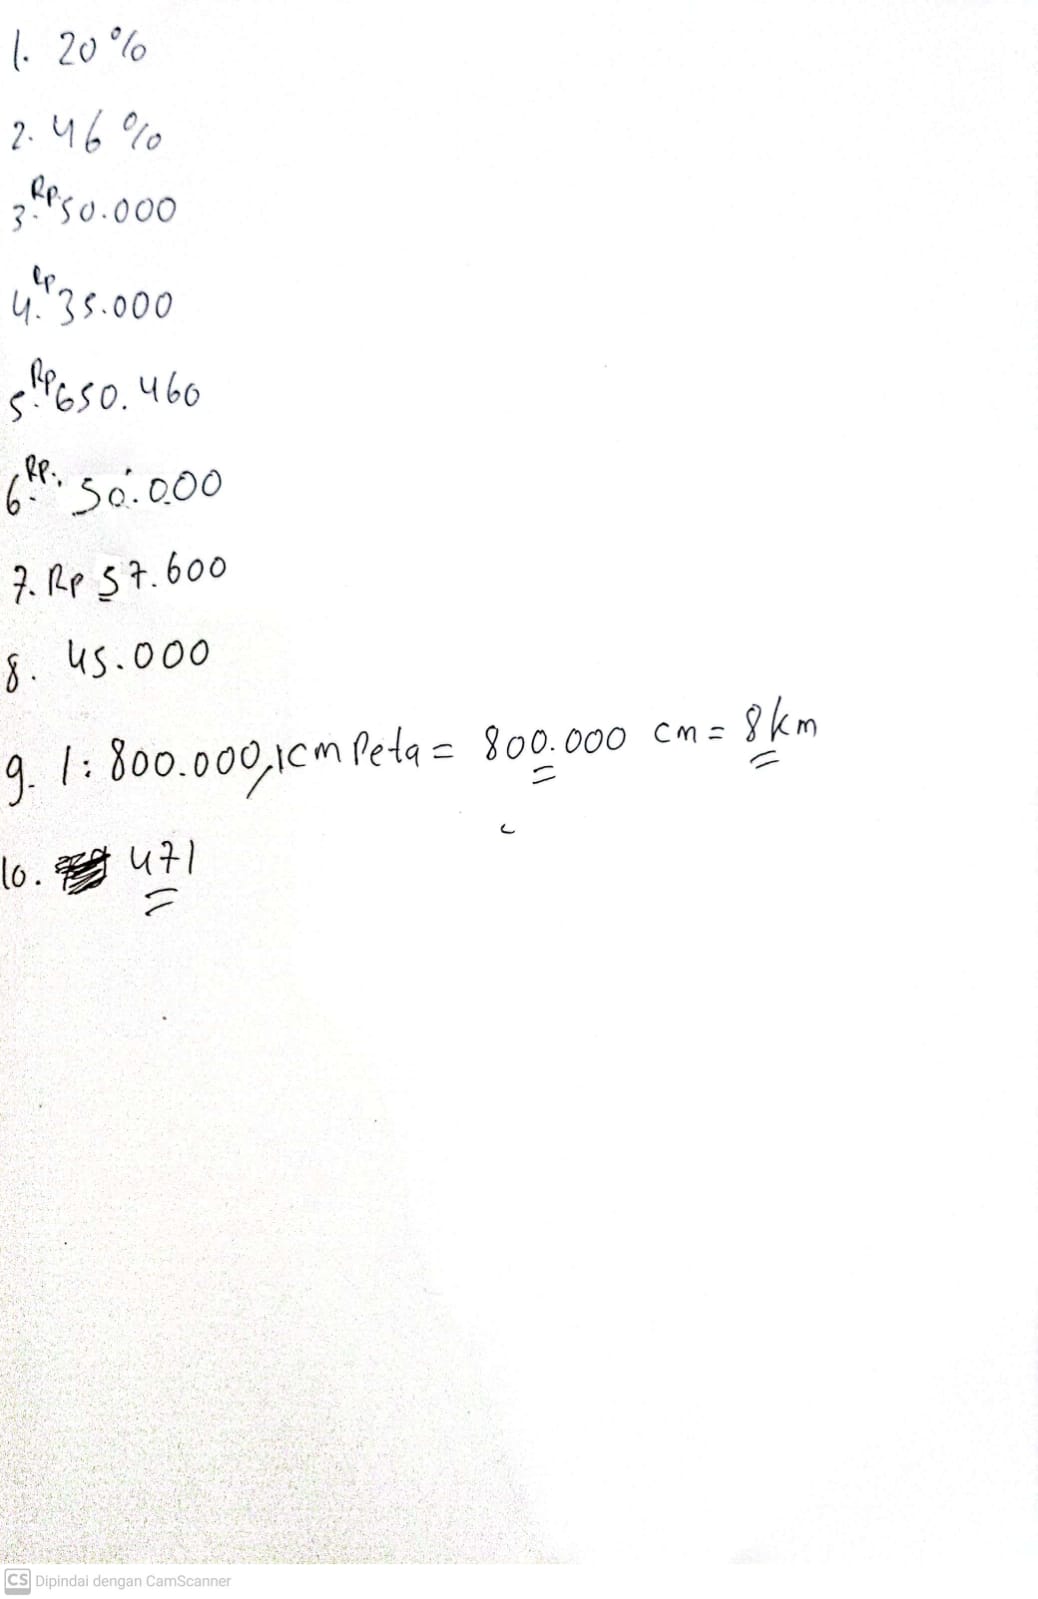 1. 20%
2. 46%
3. Rp. 50.000
4. Rp 35.000
5. Rp 650.460
6. Rp. 50.000
7. Rp 57.600
8. 45.000
9. 1:800.000, 1cm Peta = 800.000 cm = 8km
10. 471
CS Dipindai dengan CamScanner